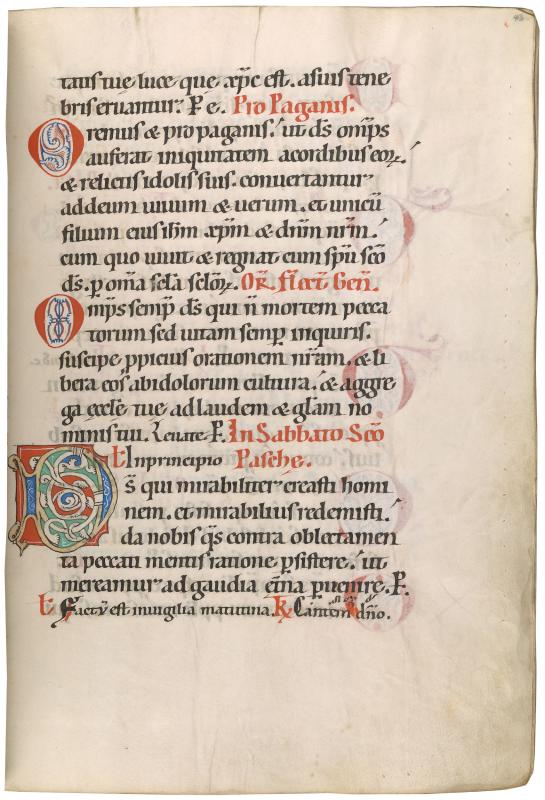 tatis tue luce que xp̄c est. a suis tene
bris eruantur. P e. Pro Paganis.
Oremus & pro paganis. ut d̄s om̄ps
auferat iniquitatem a cordibus eoꝝ.
& relictis idolis suis. convertantur
ad deum uiuum & uerum. et unicū
filium eius ih̄m xp̄m & dn̄m nr̄m.
cum quo uiuit & regnat cum sp̄u sc̄o
d̄s. ꝑ om̄a sc̄la sc̄loꝝ. Or̄. flect̄ Gen̄.
Om̄ps semp̄ d̄s qui n̄ mortem pecca
torum sed uitam semꝑ inquiris.
suscipe ꝓpicius orationem nr̄am. & li
bera eos ab idolorum cultura. & aggre
ga eccl̄e tue ad laudem & gl̄am no
minis tui. Leuate P. In Sabbato Sc̄o
t Inprincipio Pasche.
D̄s qui mirabiliter creasti homi
nem. et mirabilius redemisti.
da nobis q̄s contra oblectamen
ta peccati mentis ratione ꝑsistere. ut
mereamur ad gaudia et̄na ꝑuenire. P.
t Factū est in uigilia matutina. R Cantem̄ dn̄o.